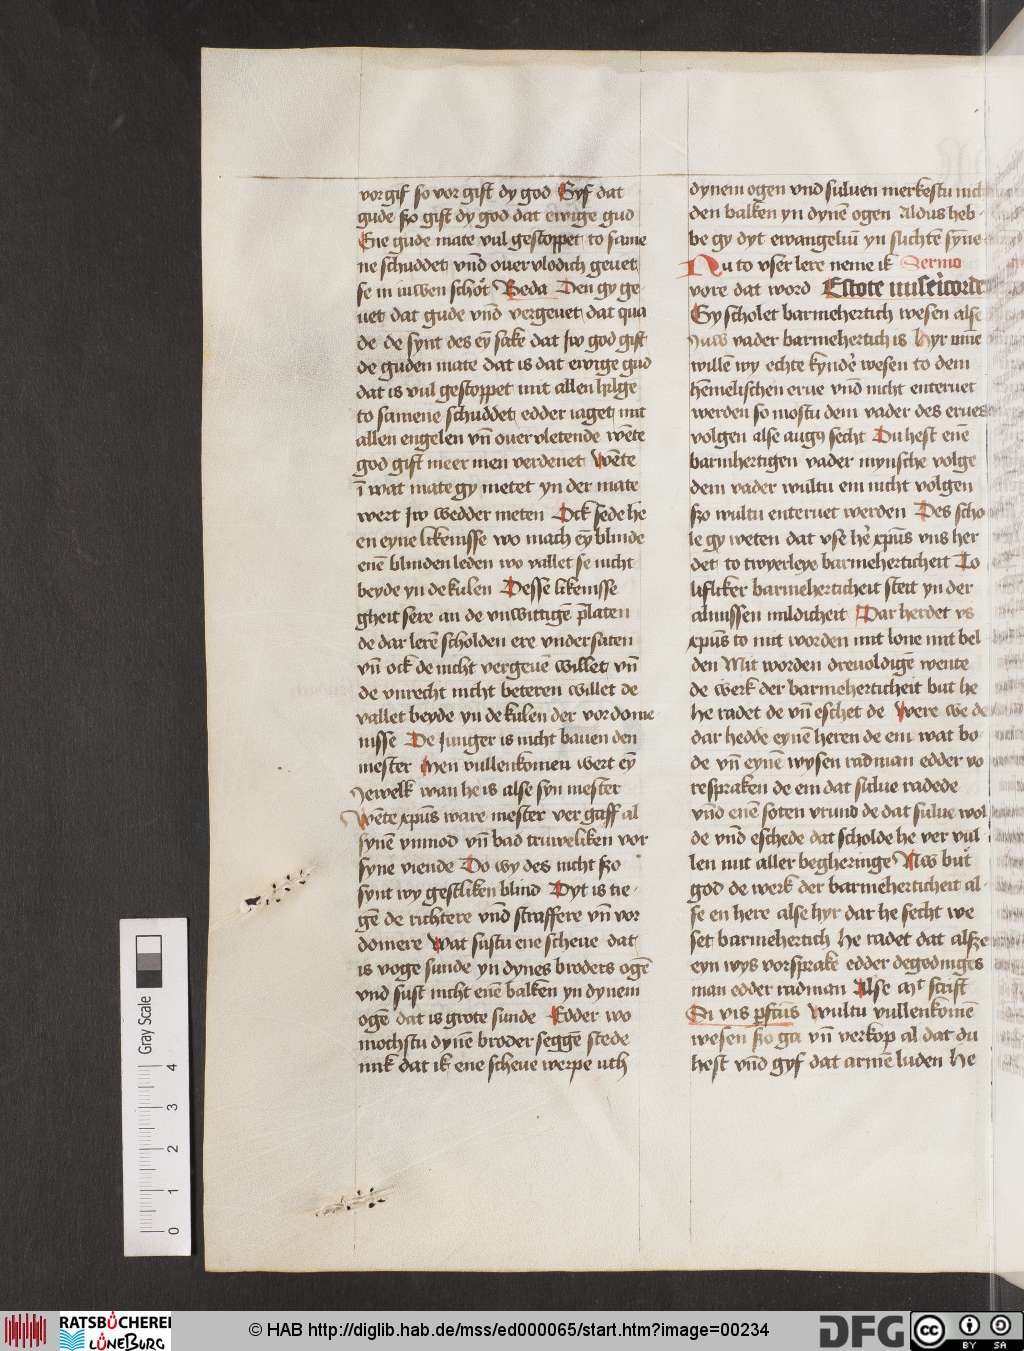 vor gif so vor gift dy god Gyf dat
gude szo gift dy god dat ewige gud
Ene gude mate vul gestoppet to same
ne schuddet vnd ouer vlodich geuet
se in iuwen schot Beda Den gy ge
uet dat gude vnd vergeuet dat qua
de de synt des ey sake dat Jw god gift
de guden mate dat is dat ewige gud
dat is vul gestoppet mit allen hilge
to samene schuddet edder iaget mit
allen engelen vn̄ ouer vletende wēte
god gift meer men verdenet Wēte
ī wat mate gy metet yn der mate
wert Jw wedder meten Ock sede he
en eyne likenisse wo mach ey blinde
enē blinden leden wo vallet se nicht
beyde yn de kulen Desse likenisse
gheit sere an de vnwittigē p̄laten
de dar lerē scholden ere vndersaten
vn̄ ock de nicht vergeuē willet vn̄
de vnrecht nicht beteren willet de
vallet beyde yn de kulen der vordome
nisse De Junger is nicht bauen den
mester Men vullenkomen wert ey
Jewelk wan he is alse syn mester
Wēte xpūs ware mester ver gaff al
synē vnmod vn̄ bad truweliken vor
syne viende Do wy des nicht szo
synt wy gestliken blind Dyt is tie
gē de richtere vnd straffere vn̄ vor
domere Wat sustu ene scheue dat
is voge sunde yn dynes broders ogē
vnd sust nicht enē balken yn dynem
ogē dat is grote sunde Edder wo
mochstu dynē broder seggē stede
mik dat ik ene scheue werpe uth
dynem ogen vnd suluen merkestu nich
den balken yn dynē ogen Aldus heb
be gy dyt ewangeliū yn slichtē syne
Nu to vser lere neme ik Sermo
vore dat word Estote misericorde
Gy scholet barmehertich wesen alse
Juw vader barmehertich is Hyr ūme
willē wy echte kynder wesen to dem
hēmelischen erue vnd nicht enteruet
werden so mostu dem vader des erues
volgen alse augꝰ secht Du hest enē
barmhertigen vader mynsche volge
dem vader wultu em nicht volgen
szo wultu enteruet werden Des scho
le gy weten dat vse he xpūs vns her
det to twyerleye barmeherticheit To
lifliker barmeherticheit steit yn der
almissen mildicheit Dar herdet vs
xpūs to mit worden mit lone mit bel
den Mit worden drevoldigē wente
de werk der barmeherticheit but he
he radet de vn̄ eschet de Were we de
dar hedde eynē heren de em wat bo
de vn̄ eynē wysen radman edder vo
respraken de em dat sulue radede
vnd enē soten vrund de dat sulue wol
de vnd eschede dat scholde he ver vul
len mit aller begheringe Alsus but
god de werk der barmeherticheit al
se en here alse hyr dar he secht we
set barmehertich He radet dat alsze
eyn wys vorsprake edder degedinges
man edder radman Alse mt scrift
Si vis pfcūs Wultu vullenkomē
wesen szo ga vn̄ verkop al dat du
hest vnd gyf dat armē luden He
Gray Scale
4
3
2
1
0
RATSBÜCHEREI
LÜNEBURG
© HAB http://diglib.hab.de/mss/ed000065/start.htm?image=00234
DFG
cc
BY SA